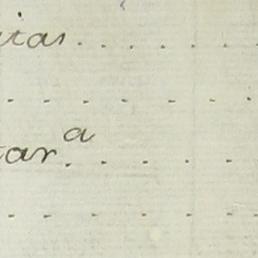 itas . . . . . .
. . . . . . .
tar.ª . . . . .
. . . . . . .